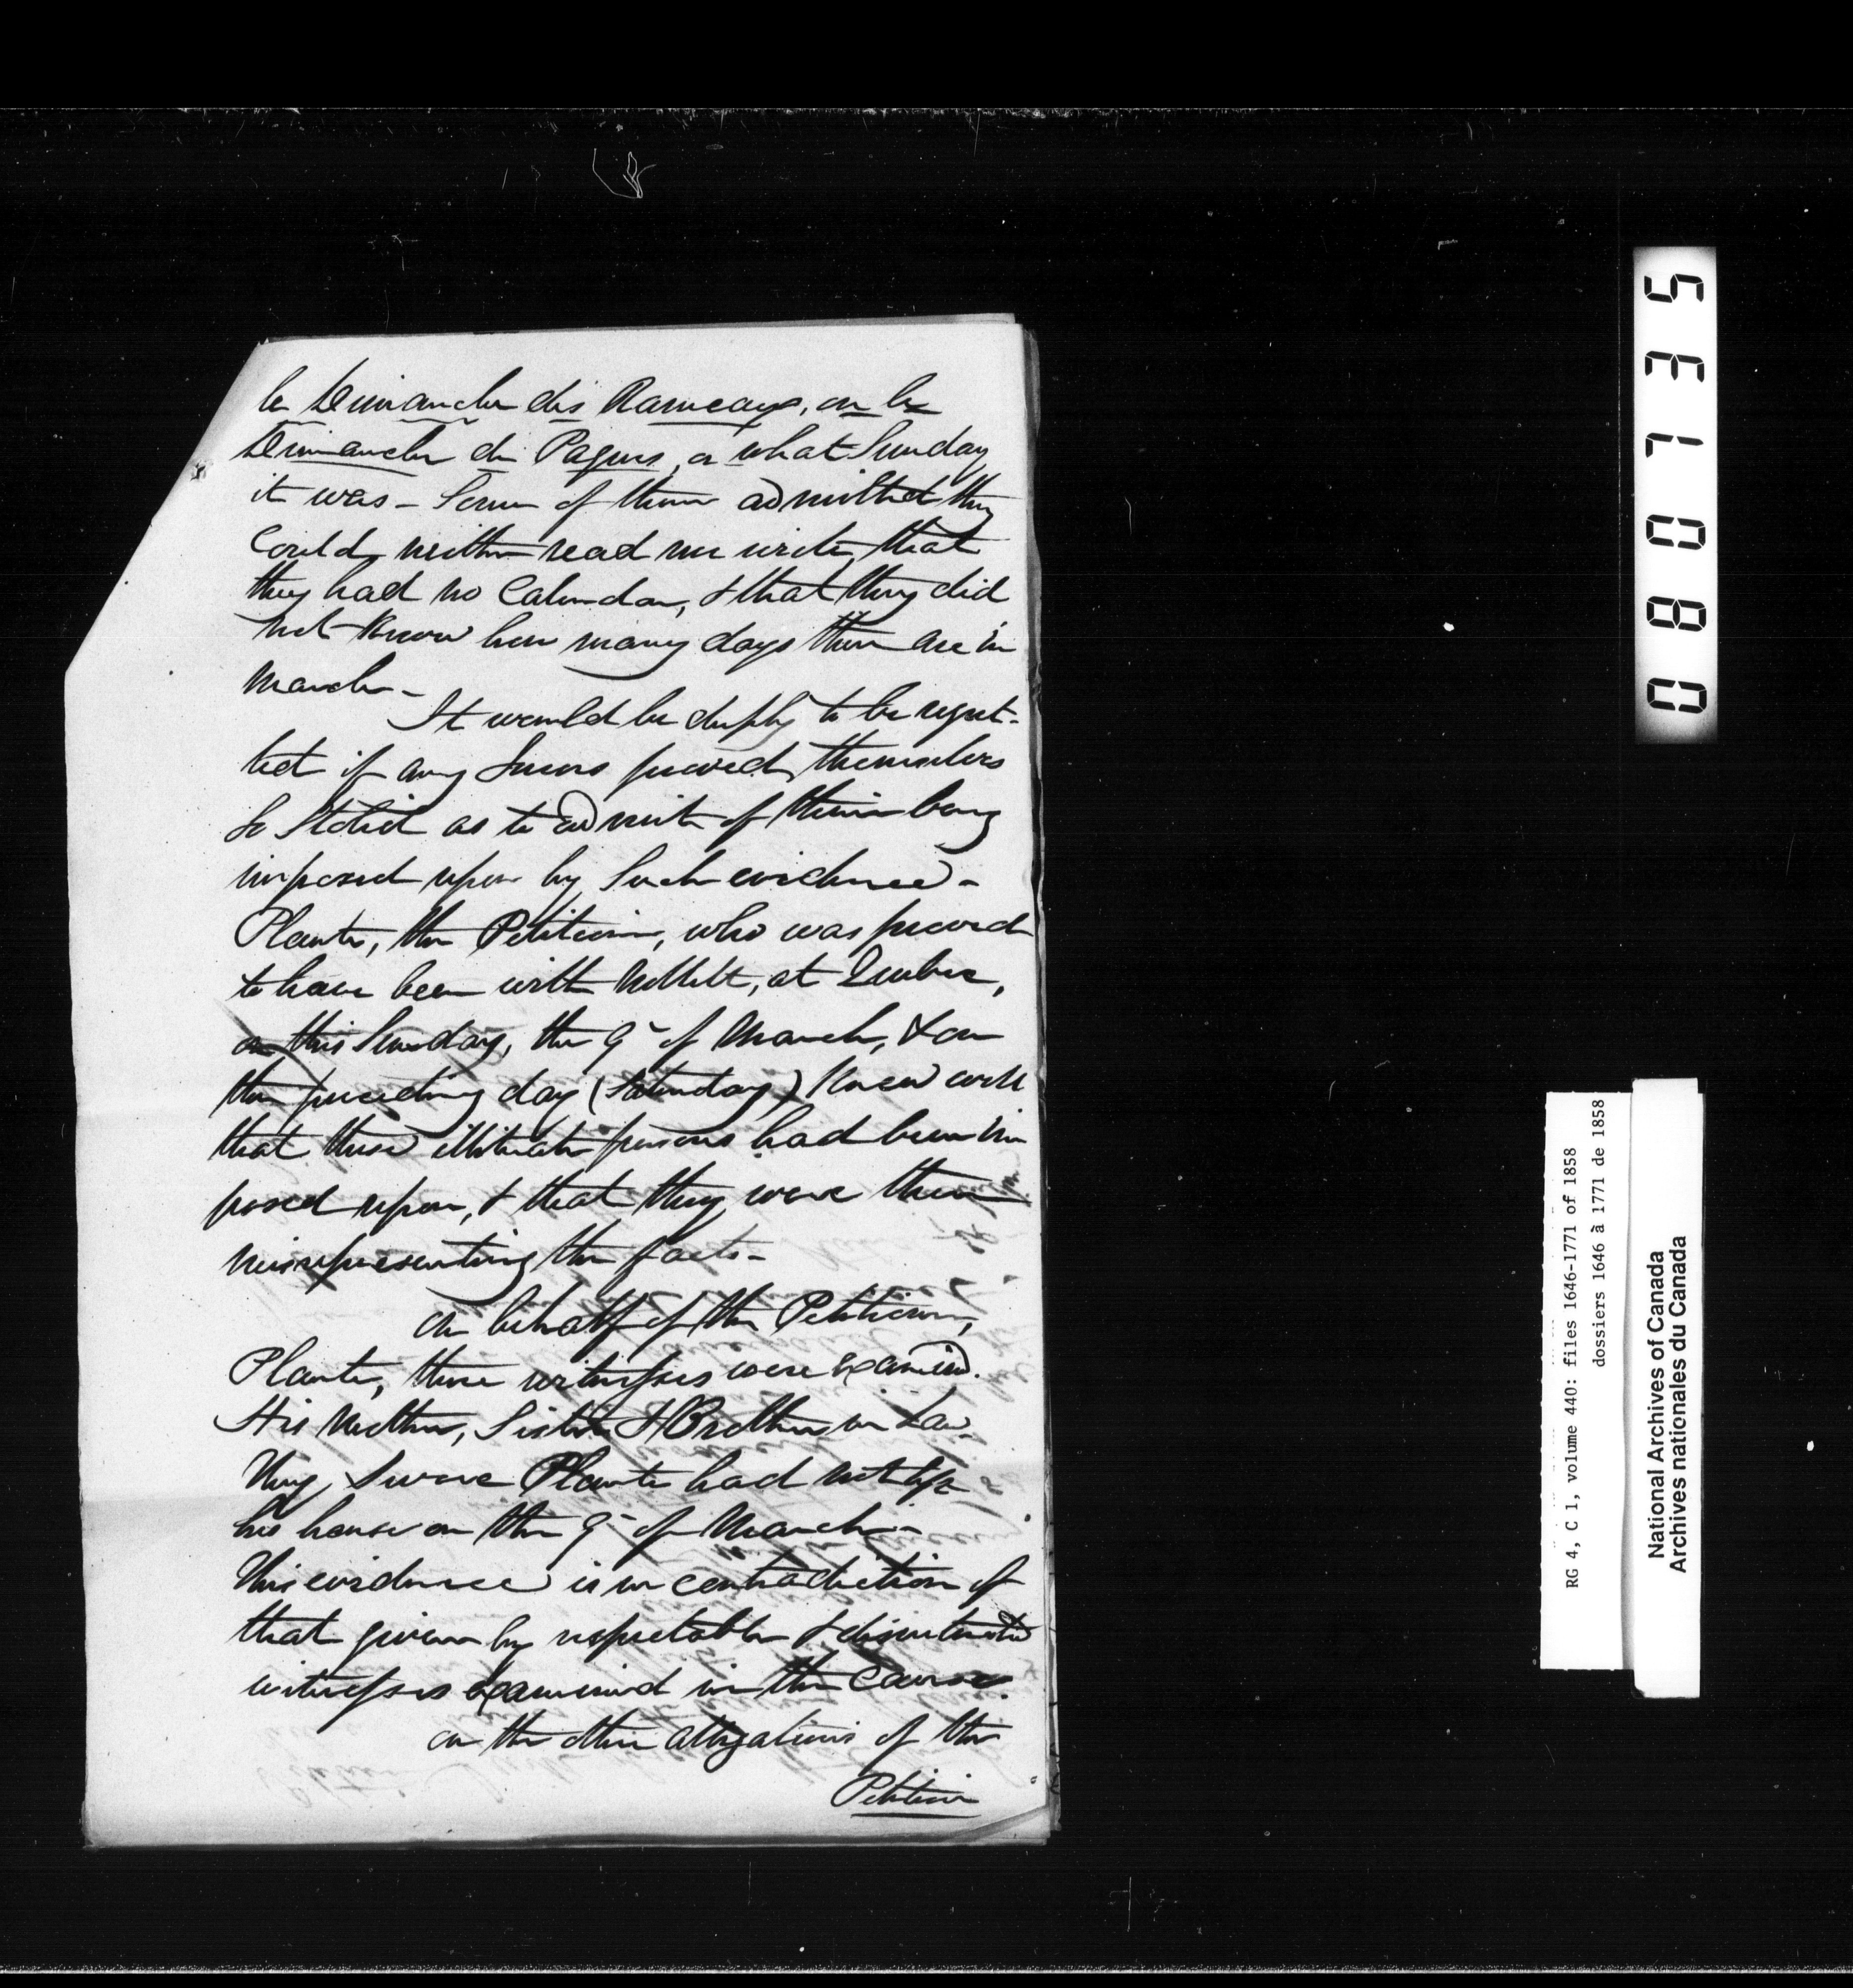 le Dimanche des Rameaux, ou le
Dimanche de Paques, or what Sunday
it was - Some of them admitted they
Could neither read nor write, that
they had no Calendar, & that they did
not Know how many days there are in
March -
It would be deeply to be regret-
ted if any Jurors proved themselves
so Stolid as to admit of their being
imposed upon by Such evidence -
Plante, the Petitioner, who was proved
to have been with at Quebec,
on this Sunday, the 9th of March, & on
the preceding day (Saturday) Knew well
that these illiterate persons had been im
posed upon, & that they were then
misrepresenting the facts -
On behalf of the Petitioner,
Plante, three witnesses were examined.
His Mother, Sister & Brother in Law.
They Swore Plante had not left
his house on the 9th of March -
This evidence is in contradiction of
that given by respectable & disinterested
witnesses examined in the Cause.
On the other allegations of the
Petition
0807135
RG 4, C 1, volume 440: files 1646-1771 of 1858
dossiers 1646 à 1771 de 1858
National Archives of Canada
Archives nationales du Canada